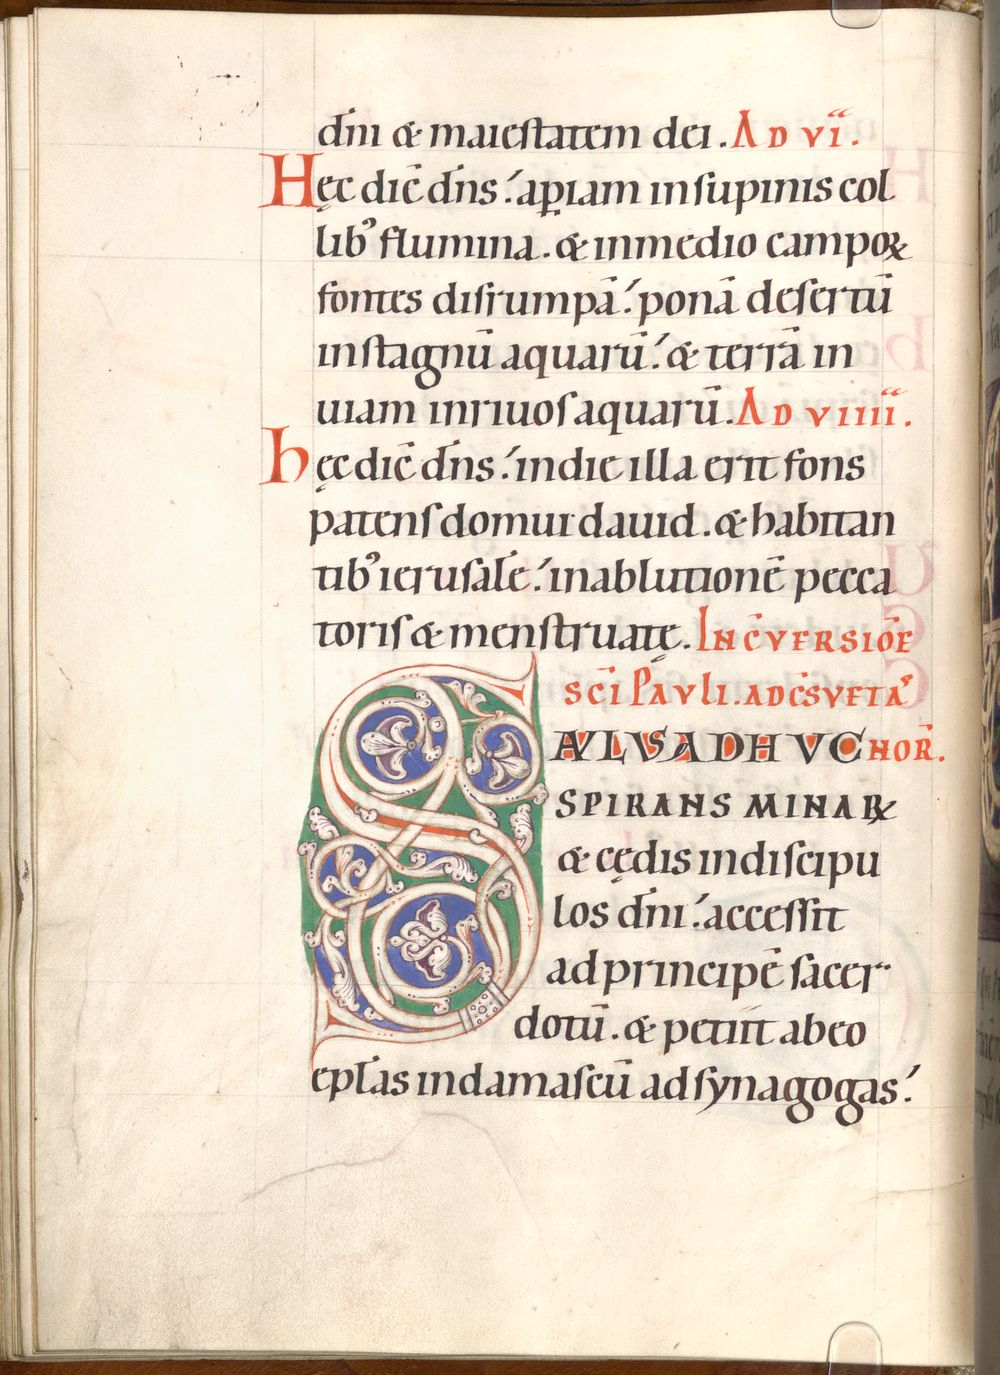 dn̄i & maiestatem dei. AD VI.
Hęc dic̄ dn̄s: aꝑiam in supinis col
lib' flumina. & in medio campoꝝ
fontes disrumpā: ponā desertū
in stagnū aquarū: & terrā in
uiam in riuos aquarū. AD VIIII.
Hęc dic̄ dn̄s: in die illa erit fons
patens domui dauid. & habitan
tib' ierusalē: in ablutionē pecca
toris & menstruatę. IN C̄VERSIOE̅
SC̄I PAVLI. AD C̄SVETA'
SAVLVS ADHVC HOR̄.
SPIRANS MINAꝜ
& cędis in discipu
los dn̄i: accessit
ad principē sacer-
dotū. & petiit ab eo
epl̄as in damascū ad synagogas: